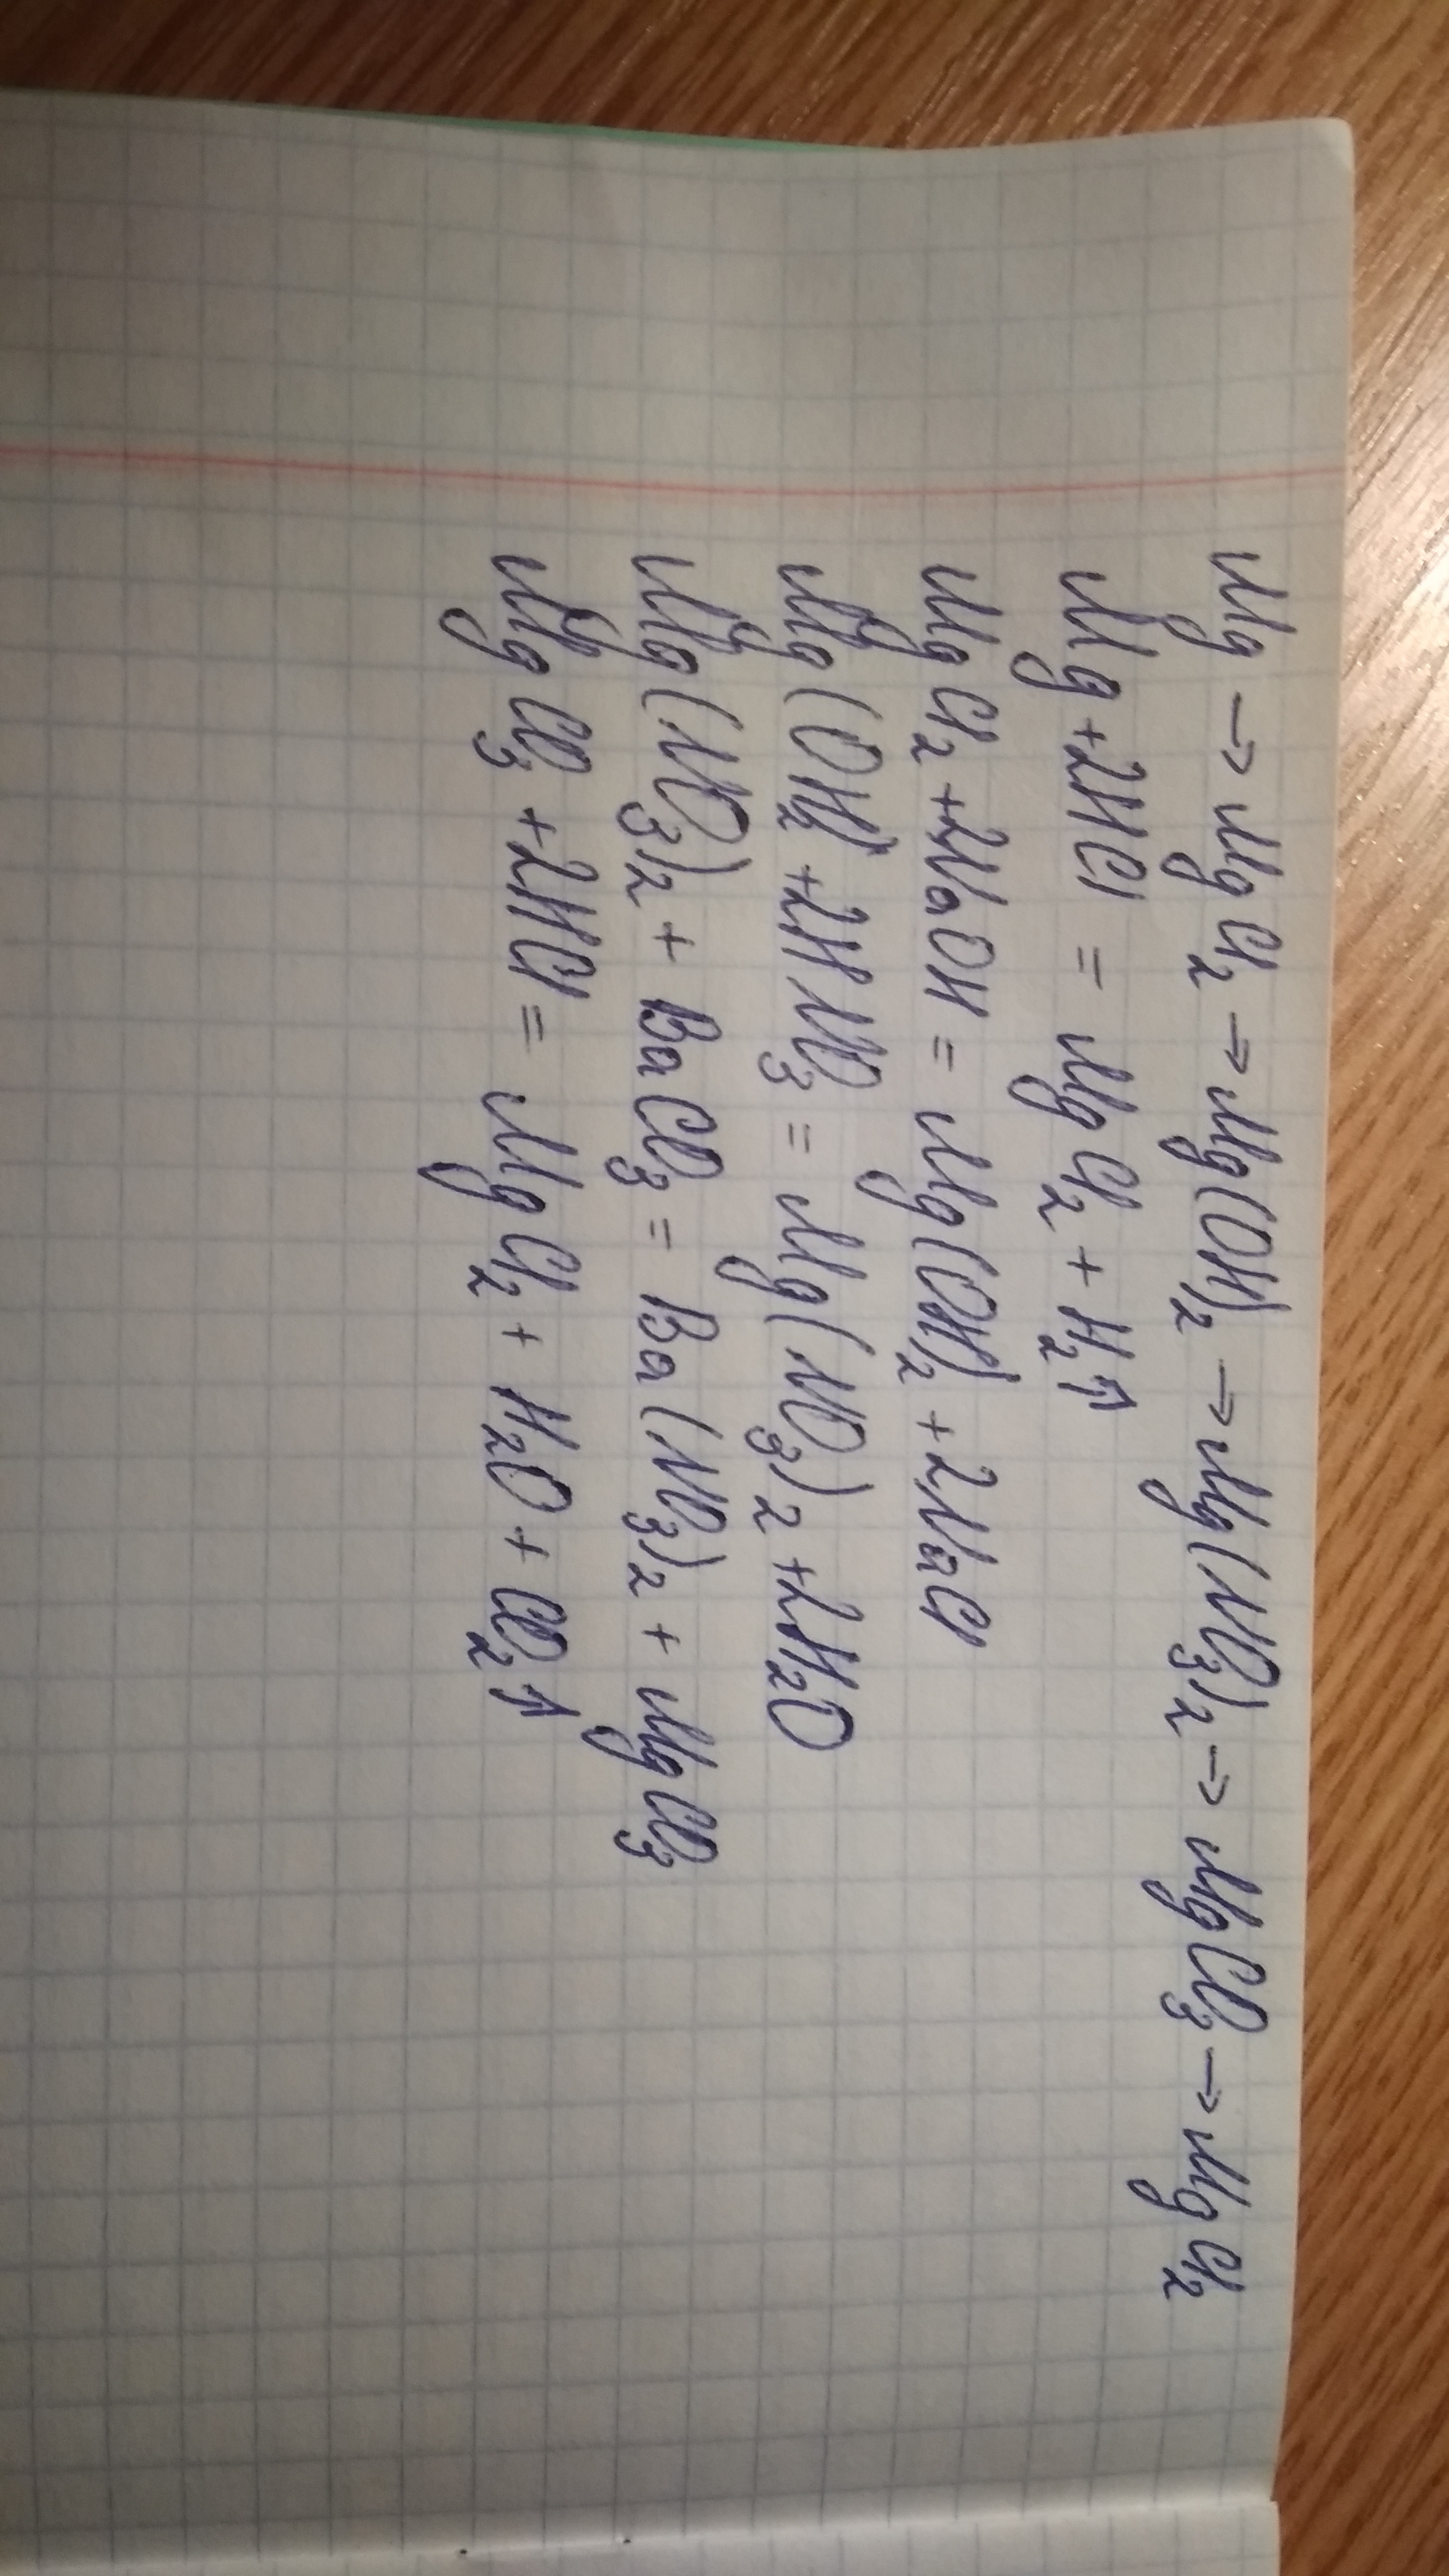 Mg → MgCl₂ → Mg(OH)₂ → Mg(NO₃)₂ → MgCO₃ → MgCl₂
Mg + 2HCl = MgCl₂ + H₂↑
MgCl₂ + 2NaOH = Mg(OH)₂ + 2NaCl
Mg(OH)₂ + 2HNO₃ = Mg(NO₃)₂ + 2H₂O
Mg(NO₃)₂ + BaCO₃ = Ba(NO₃)₂ + MgCO₃
MgCO₃ + 2HCl = MgCl₂ + H₂O + CO₂↑